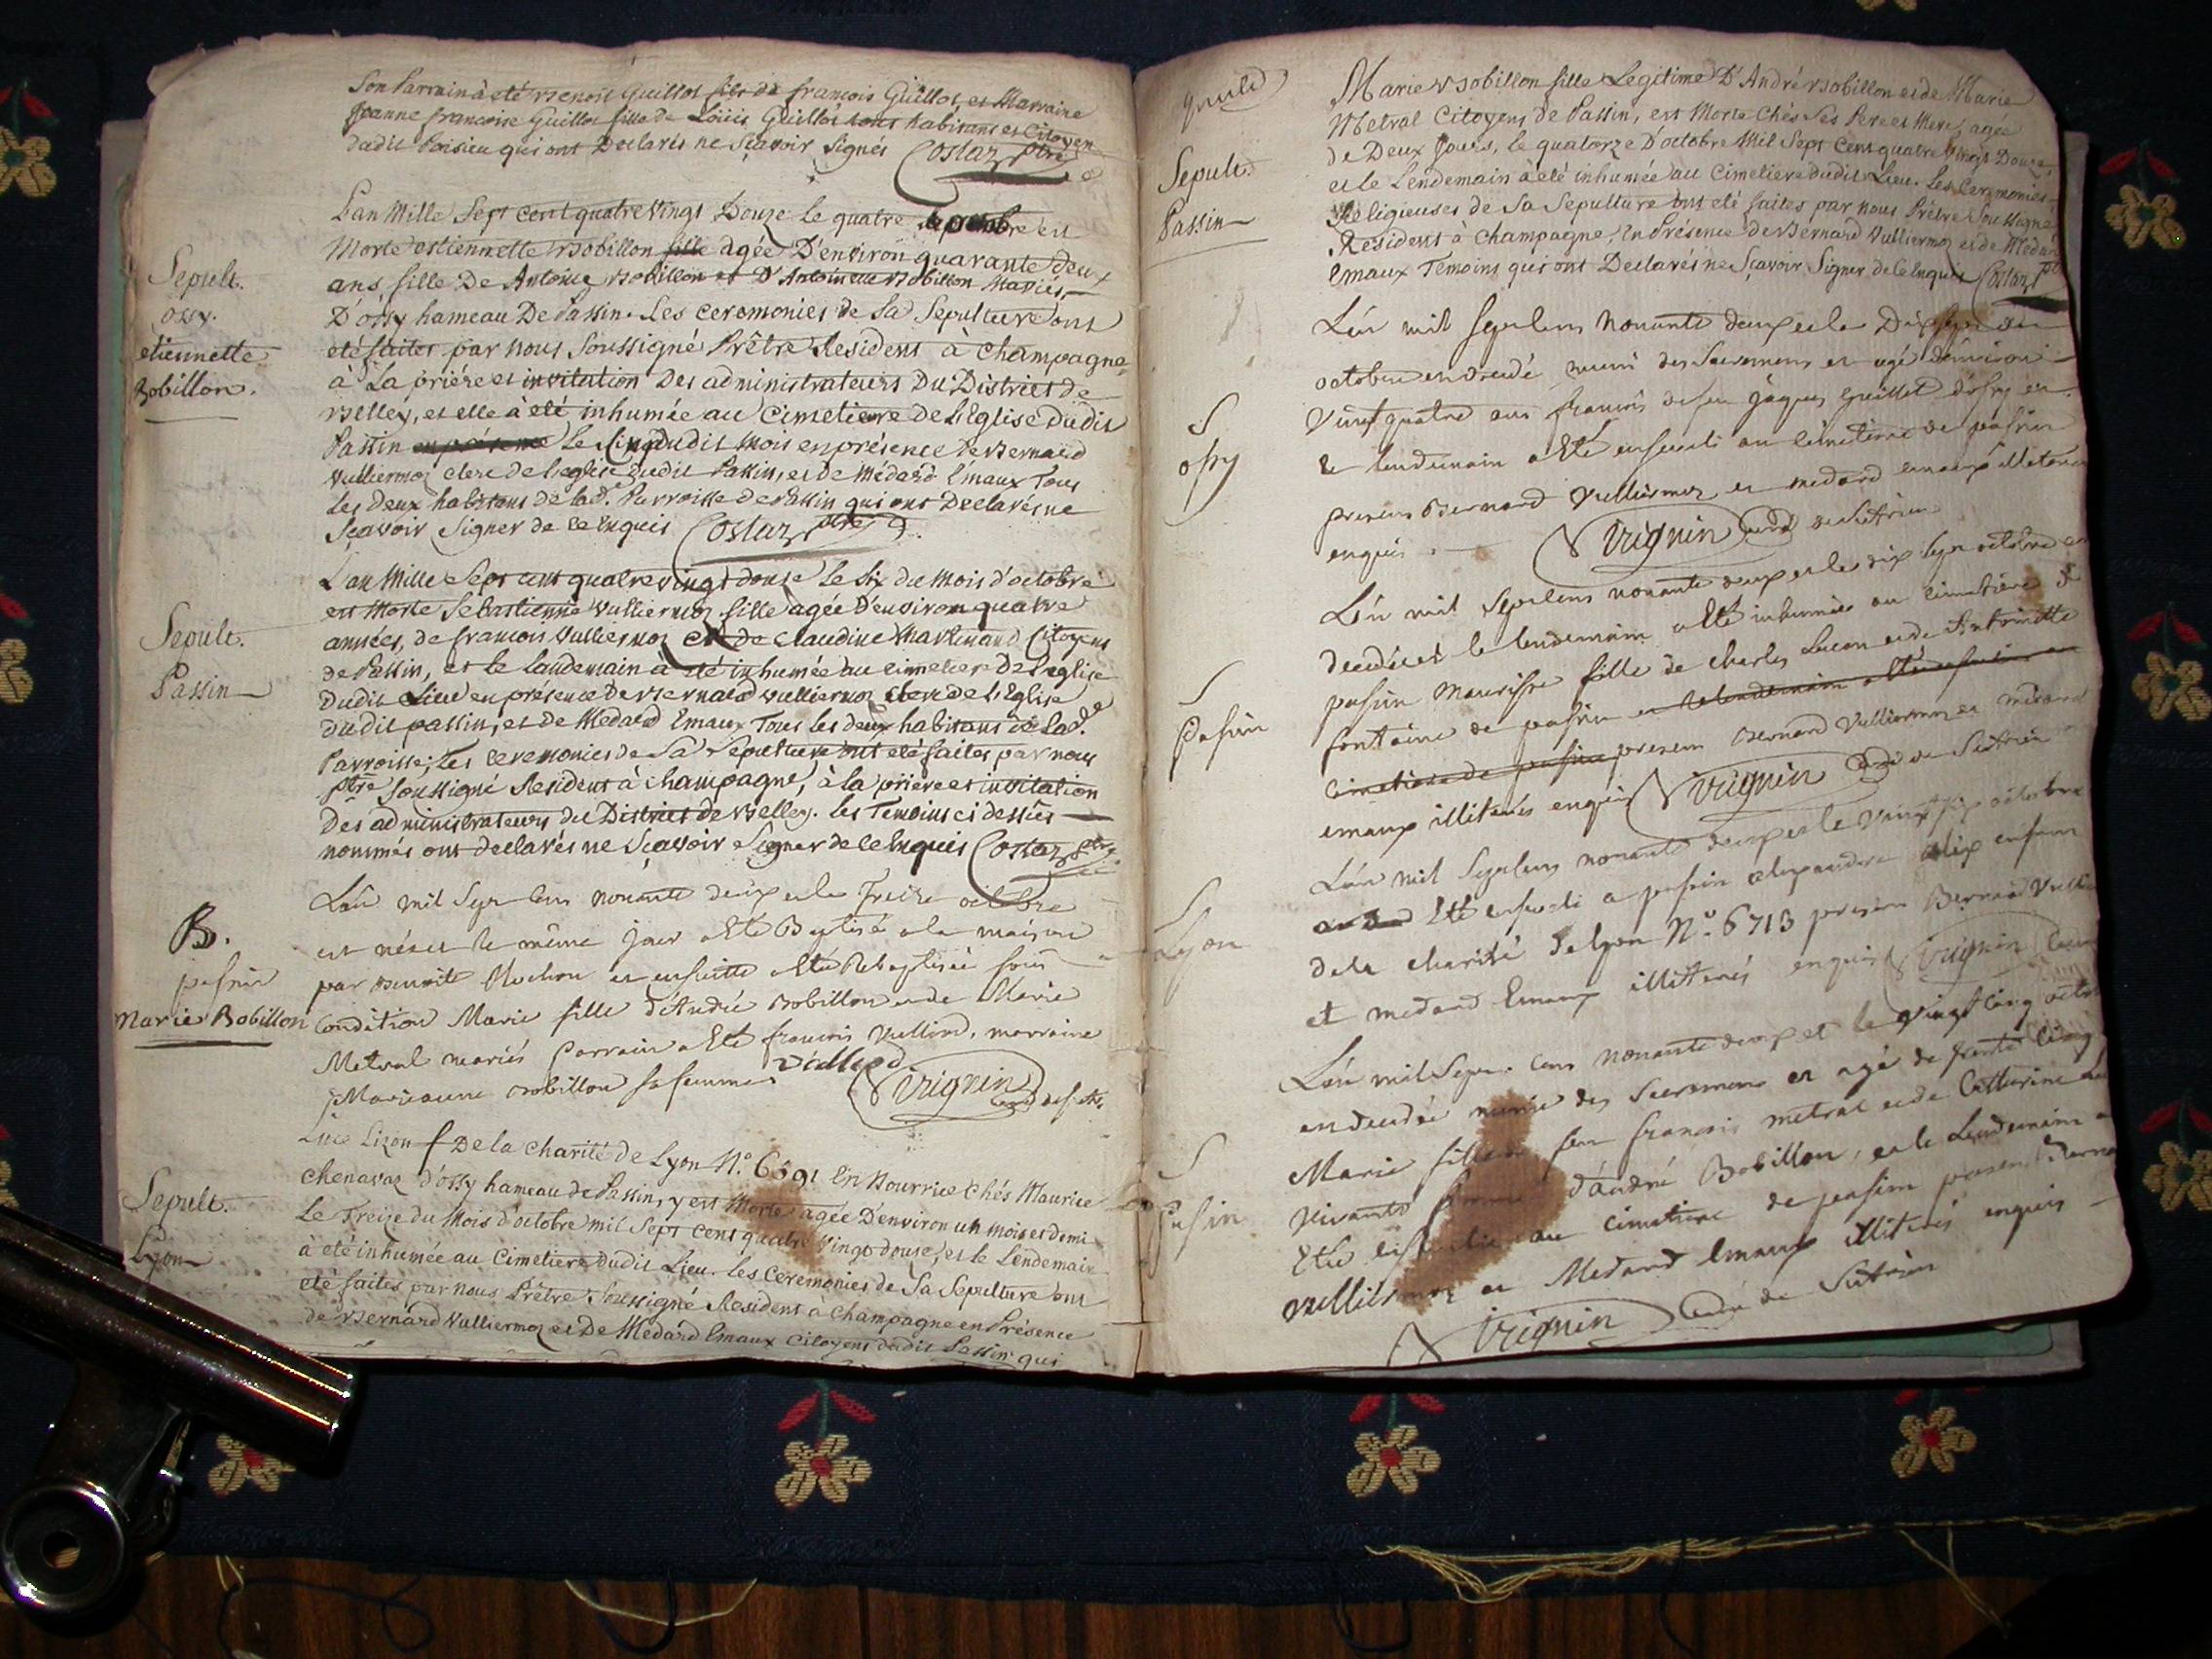 Son Parrain à eté Benoit Guillot fils de françois Guillot, et Marraine
Jeanne francoise Guillot fille de Loüis Guillot tous habitans et Citoyen
dudit Poisieu qui ont Declarés ne Sçavoir Signer Costaz ptre
Sepult.
ossy.
etiennette
Bobillon.
L'an Mille Sept cent quatre vingt Douze le quatre octobre est
Morte estiennette Bobillon fille agée D'environ quarante deux
ans, fille De Antoine Bobillon et D'Antoinette Bobillon Mariés,
D'ossy hameau De Passin. Les ceremonies de Sa Sepulture ont
eté faites par nous Soussigné Prêtre Resident à Champagne
à La priére et invitation Des administrateurs Du District de
Belley, et elle à eté inhumée au Cimetiere De L'Eglise dudit
Passin en présence le Cinq dudit Mois en présence De Bernard
Vulliermoz clerc de l'eglise dudit Passin, et de Médard Emaux Tous
Les deux habitans de lad. Parroisse de Passin qui ont Declarés ne
Sçavoir Signer de ce Enquis Costaz ptre
Sepult.
Passin
L'an Mille Sept cent quatre vingt douse le Six du Mois d'octobre
est Morte Sebastienne Vulliermoz fille agée D'environ quatre
années, de francois Vulliermoz et de Claudine Martinand Citoyens
de Passin, et le landemain à eté inhumée au cimetiere De l'eglise
dudit Lieu en présence de Bernard Vulliermoz Clerc de L'Eglise
dudit passin, et de Médard Emaux Tous les deux habitans de lad.e
Parroisse; Les ceremonies de Sa Sepulture ont eté faites par nous
ptre Soussigné Resident à Champagne, à la prière et invitation
Des administrateurs du District de Belley. les Temoins ci dessus
nommés ont declarés ne Sçavoir Signer de ce Enquis Costaz ptre
B.
passin
Marie Bobillon
L'an mil Sept Cens nonante deux et le Treize octobre
est néé et le même jour a Eté Baptisé a la maison
par Benoite Mochon et ensuitte a Eté Rebaptiséé sous
Condition Marie fille d'André Bobillon et de Marie
Metral mariés parrain a Eté francois Vullierd, marraine
Marieanne Bobillon sa femme
Virignin curé de Sutr.
Sepult.
Lyon
Luce Lizon De la charité de Lyon N.o 6391 En Nourrice Chés Maurice
Chenavaz d'ossy hameau de Passin, y est Morte agée D'environ un mois et demi
Le Treize du Mois d'octobre mil Sept cent quatre Vingt douse, et le Lendemain
à eté inhumée au Cimetiere dudit Lieu. Les Ceremonies de Sa Sepulture ont
eté faites par nous Prêtre Soussigné Resident à Champagne en Présence
de Bernard Vulliermoz et De Médard Emaux Citoyens dudit Passin qui
Sepult.
Passin
Marie Bobillon fille Legitime D'André Bobillon et de Marie
Metral Citoyens de Passin, est Morte Chés Ses Pere et Mere, agée
de Deux Jours, le quatorze D'octobre Mil Sept Cent quatre Vingt Douze
et le Lendemain à eté inhumée au Cimetiere dudit Lieu. Les Ceremonies
Religieuses de Sa Sepulture ont eté faites par nous Prêtre Soussigné
Resident à Champagne, En Présence de Bernard Vulliermoz et de Médard
Emaux Temoins qui ont Declarés ne Sçavoir Signer de ce Enquis Costaz ptre
S
ossy
L'an mil Sept Cens Nonante deux et le Dix Sept
octobre est decedé muni des Sacremens et agé d'environ
Vint quatre ans francois de feu Jaques Guillot d'ossy et
le lendemain a Eté enseveli au Cimetiere de passin
presens Bernard Vulliermoz et medard emaux illiterés
enquis. Virignin curé de Sutrieu
S
Passin
L'an mil Sept Cens nonante deux et le dix Sept octobre est
decedéé et le lendemain a Eté inhumée au cimetiere de
passin Maurisse fille de Charles Lucon et de Antoinette
fontaine de passin et le lendemain a Eté au
Cimetiere de passin presens Bernard Vulliermoz et médard
emaux illiterés enquis Virignin curé de Sutrieu
S
Lyon
L'an mil Sept Cens nonante deux et le Vint Six octobre
a Eté enseveli a passin alexandre alix enfant
de la charité de lyon N.o 6713 presens Bernard Vull
et medard Emaux illiterés enquis Virignin
S
Passin
L'an mil Sept Cens nonante deux et le Vingt Cinq octo
est decedée munie des Sacremens et agé de trente Cinq
Marie fille de feu francois metral et de Catherine
Vivante femme d'andré Bobillon, et le Lendemain a
Eté ensevelie au Cimetiere de passin presens Berna
Vulliermoz et Medard Emaux illiterés enquis
Virignin curé de Sutrieu